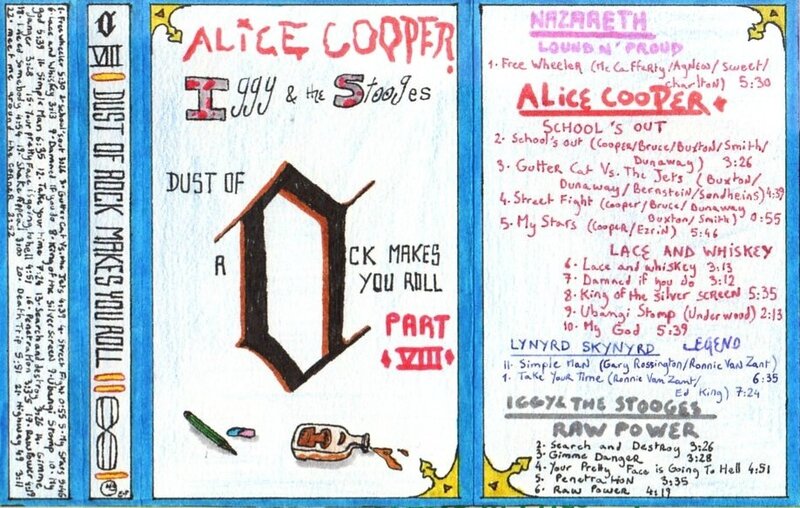 1- Free wheeler 5:30 2- School's out 3:26 3- Gutter Cat Vs. the Jets 4:39 4- Street Fight 0:55 5- My Stars 5:46
6- Lace and Whiskey 3:13 7- Damned if you do 8- King of the silver screen 9- Ubangi Stomp 10- My
god 5:39 11- Simple Man 6:35 12- Take your time 7:24 13- Search and destroy 3:26 14- Gimme
Danger 3:28 15- Your pretty Face is going to hell 4:51 16- Penetration 3:35 17- Raw Power 4:19
18- I Need Somebody 4:54 19- Shake Appeal 3:00 20- Death Trip 5:51 21- Highway 49 3:11
22- meet me around the corner 2:52
VIII DUST OF ROCK MAKES YOU ROLL
ALICE COOPER
Iggy & the Stooges
DUST OF
ROCK MAKES
YOU ROLL
PART
VIII
NAZARETH
LOUND N' PROUD
1. Free Wheeler (Mc Cafferty/Agnew/Sweet/
Charlton) 5:30
ALICE COOPER
SCHOOL'S OUT
2- School's out (Cooper/Bruce/Buxton/Smith/
Dunaway) 3:26
3. Gutter Cat Vs. The Jets (Buxton/
Dunaway/Bernstein/Sondheins) 4:39
4. Street Fight (Cooper/Bruce/Dunaway
Buxton/Smith) 0:55
5. My Stars (Cooper/Ezrin) 5:46
LACE AND WHISKEY
6- Lace and whiskey 3:13
7- Damned if you do 3:12
8- King of the silver screen 5:35
9- Ubangi Stomp (Underwood) 2:13
10- My God 5:39
LYNYRD SKYNYRD LEGEND
11. Simple Man (Gary Rossington/Ronnie Van Zant)
6:35
1. Take Your Time (Ronnie Van Zant/
Ed King) 7:24
IGGY & THE STOOGES
RAW POWER
2- Search and Destroy 3:26
3- Gimme Danger 3:28
4- Your Pretty Face is Going To Hell 4:51
5- Penetration 3:35
6- Raw Power 4:19